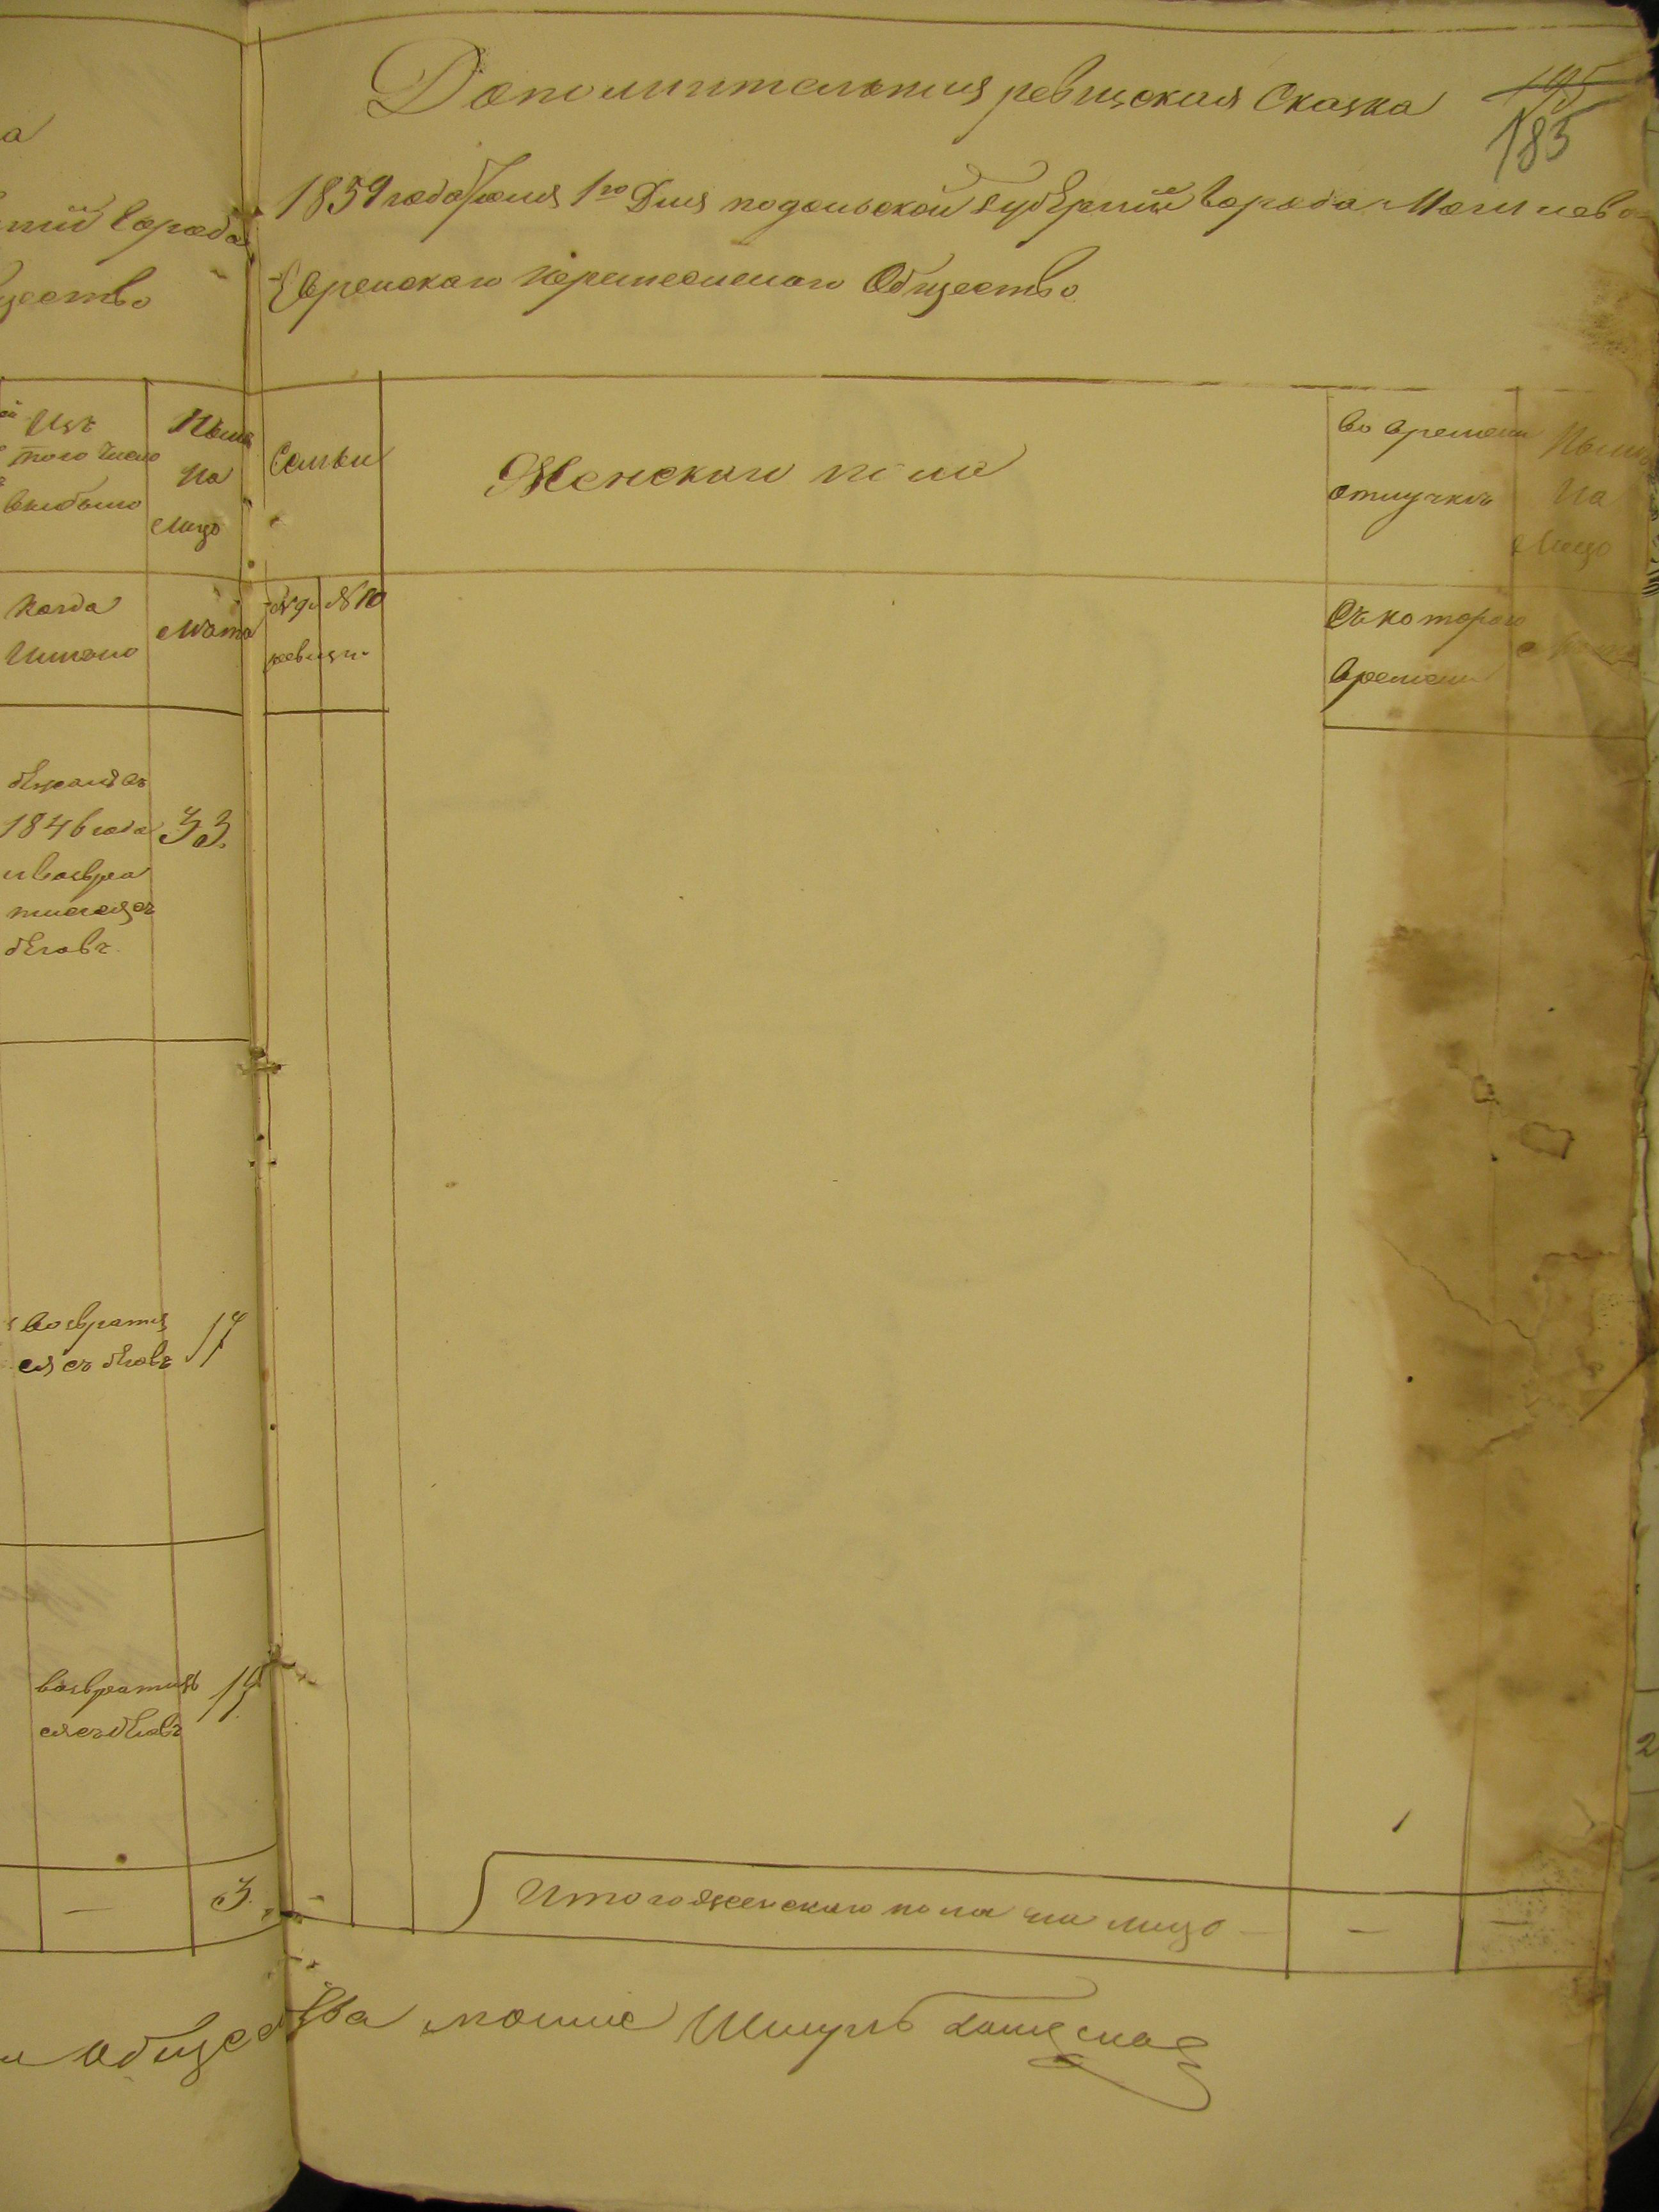 а
города
щество
Изъ
того числа
выбыло
Ныне
на
лицо
когда
имянно
лета
бежалъ въ
1846 года
и возвра
тился съ
беговъ.
33.
возврати
ся съ беговъ
17
возвратил
ся съ беговъ
19
—
3.
и общес
Дополнительная ревизская Сказка
195
185
1859 года Июня 1го Дня подольской губерний города Могилева
Еврейского Общество
Семьи
Женского пола
Во времени
отлучкъ
Ныне
на
лицо
№ 9й № 10
ревизи
Съ которого
времени
Итого женского пола на лицо — — —
тва Шмуль
2